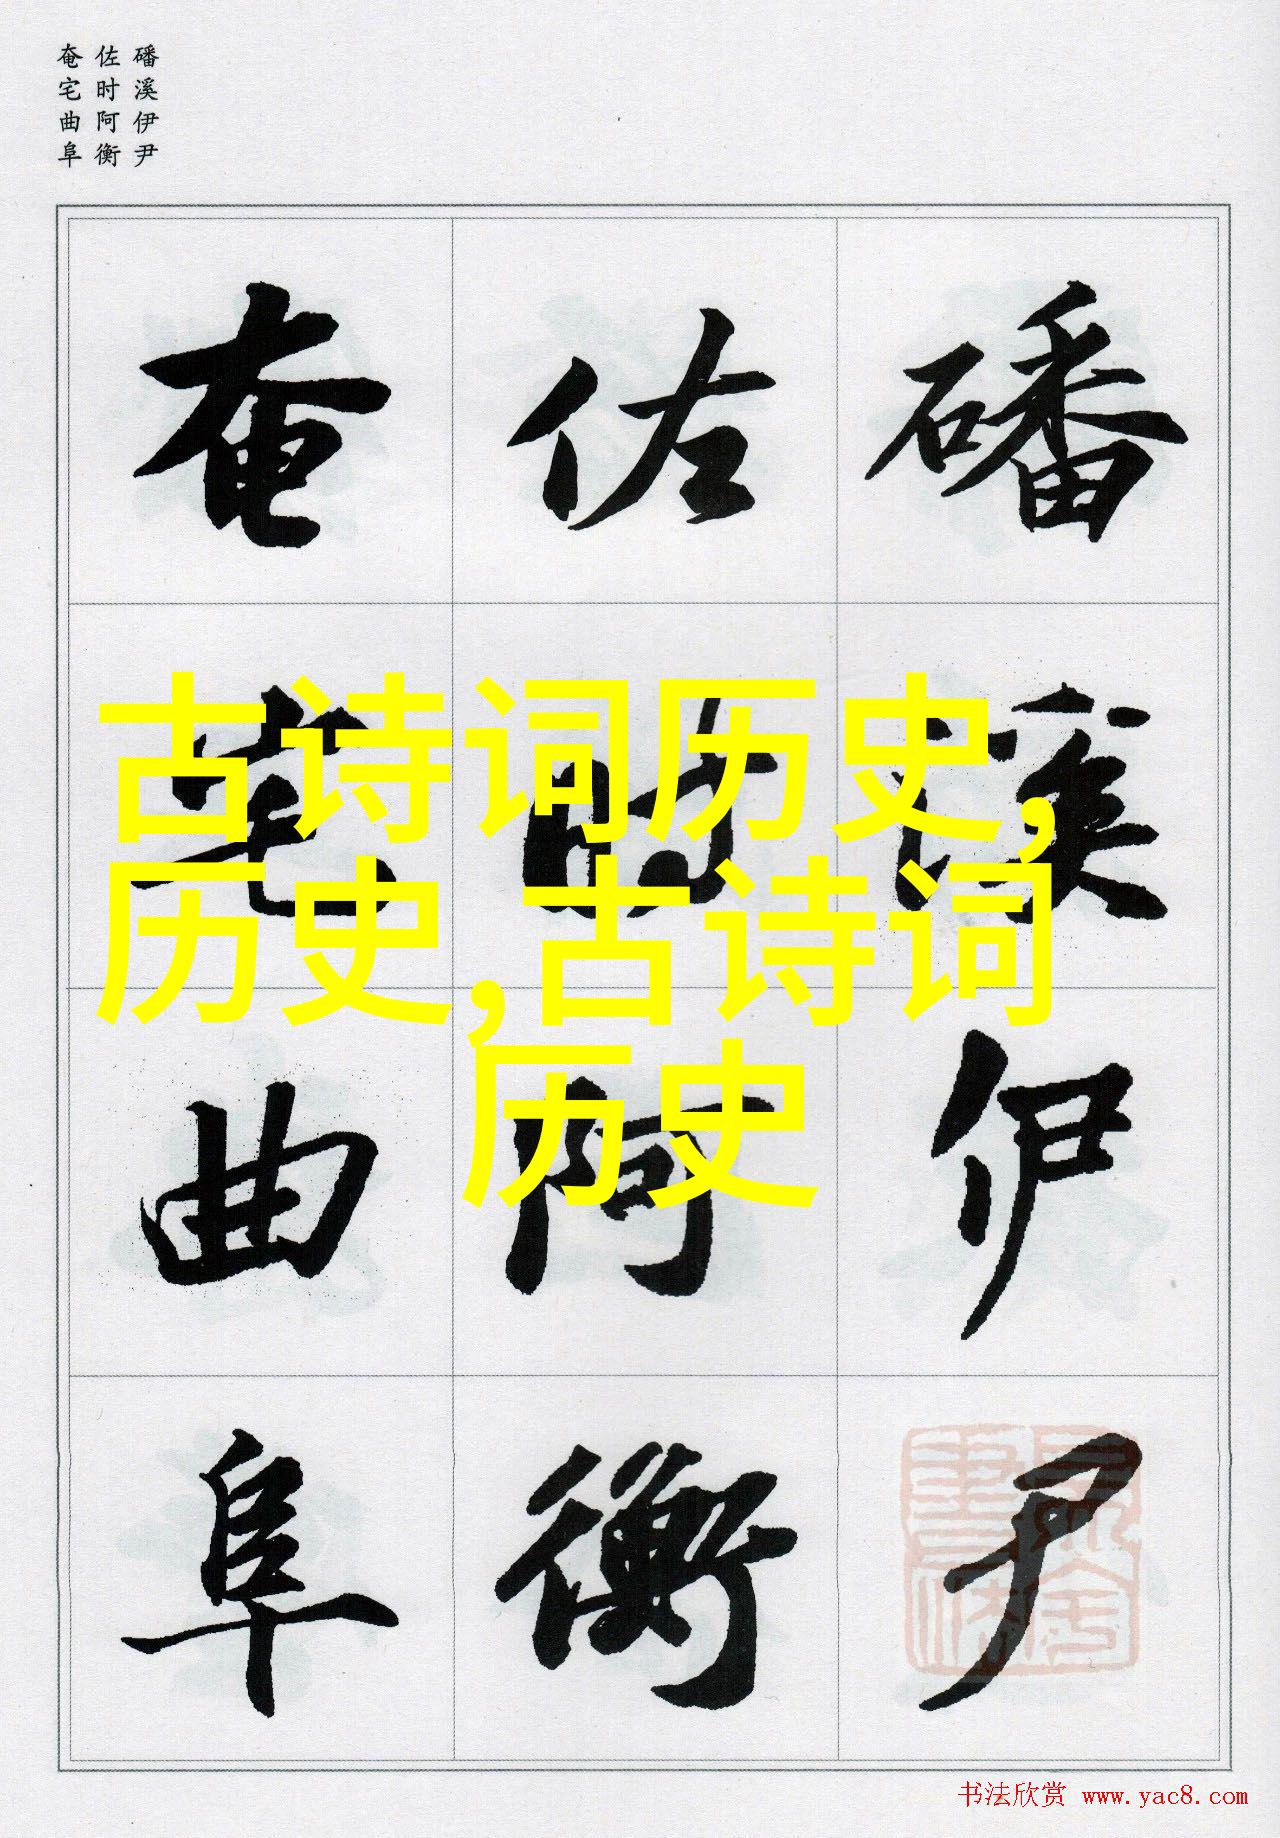 磻溪伊尹
佐时阿衡
奄宅曲阜
磻溪伊尹
佐时阿衡
奄宅曲阜
古诗词历史,
历史,古诗词
历史
书法欣赏 www.yac8.com